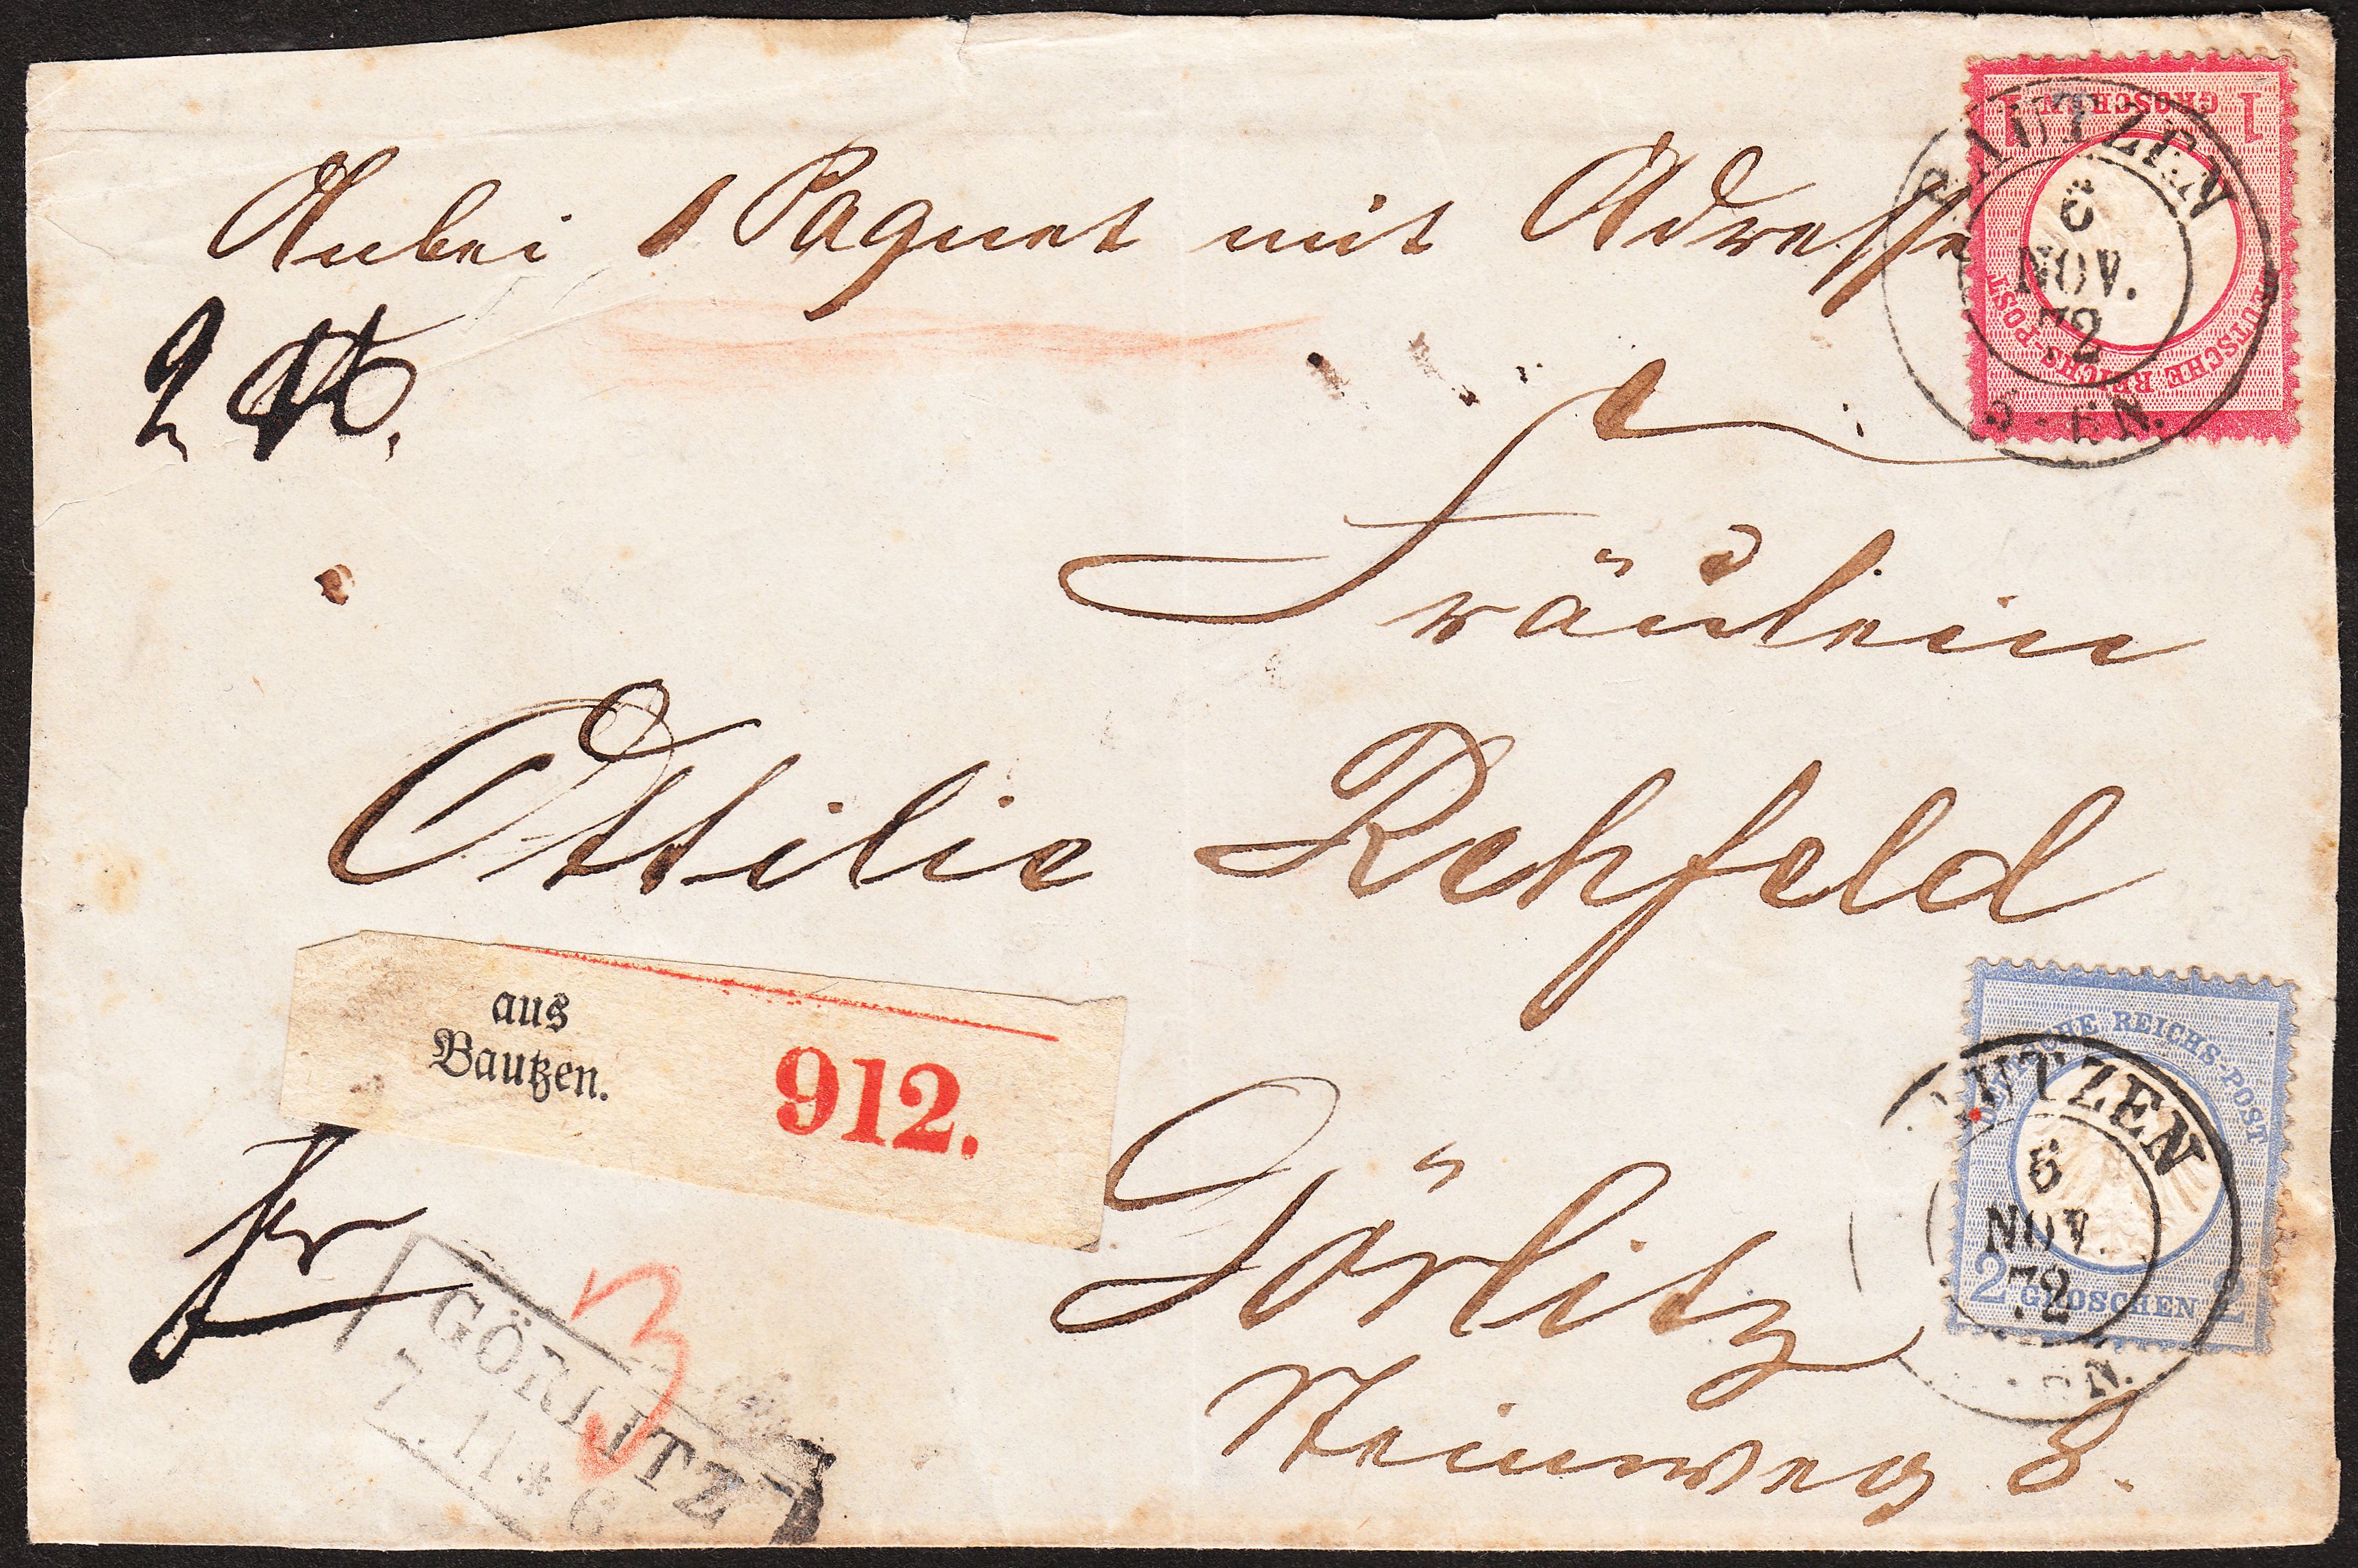 Anbei 1 Paquet mit Adresse
2 ℔.
Fräulein
Ottilie Rehfeld
Görlitz
Steinweg 8.
aus
Bautzen.
912.
fr
3
GÖRLITZ
7. 11 * 6
1 GROSCHEN 1
DEUTSCHE REICHS-POST
BAUTZEN
6
NOV.
72
5 - 6 N.
DEUTSCHE REICHS-POST
2 GROSCHEN 2
BAUTZEN
6
NOV.
72
N.